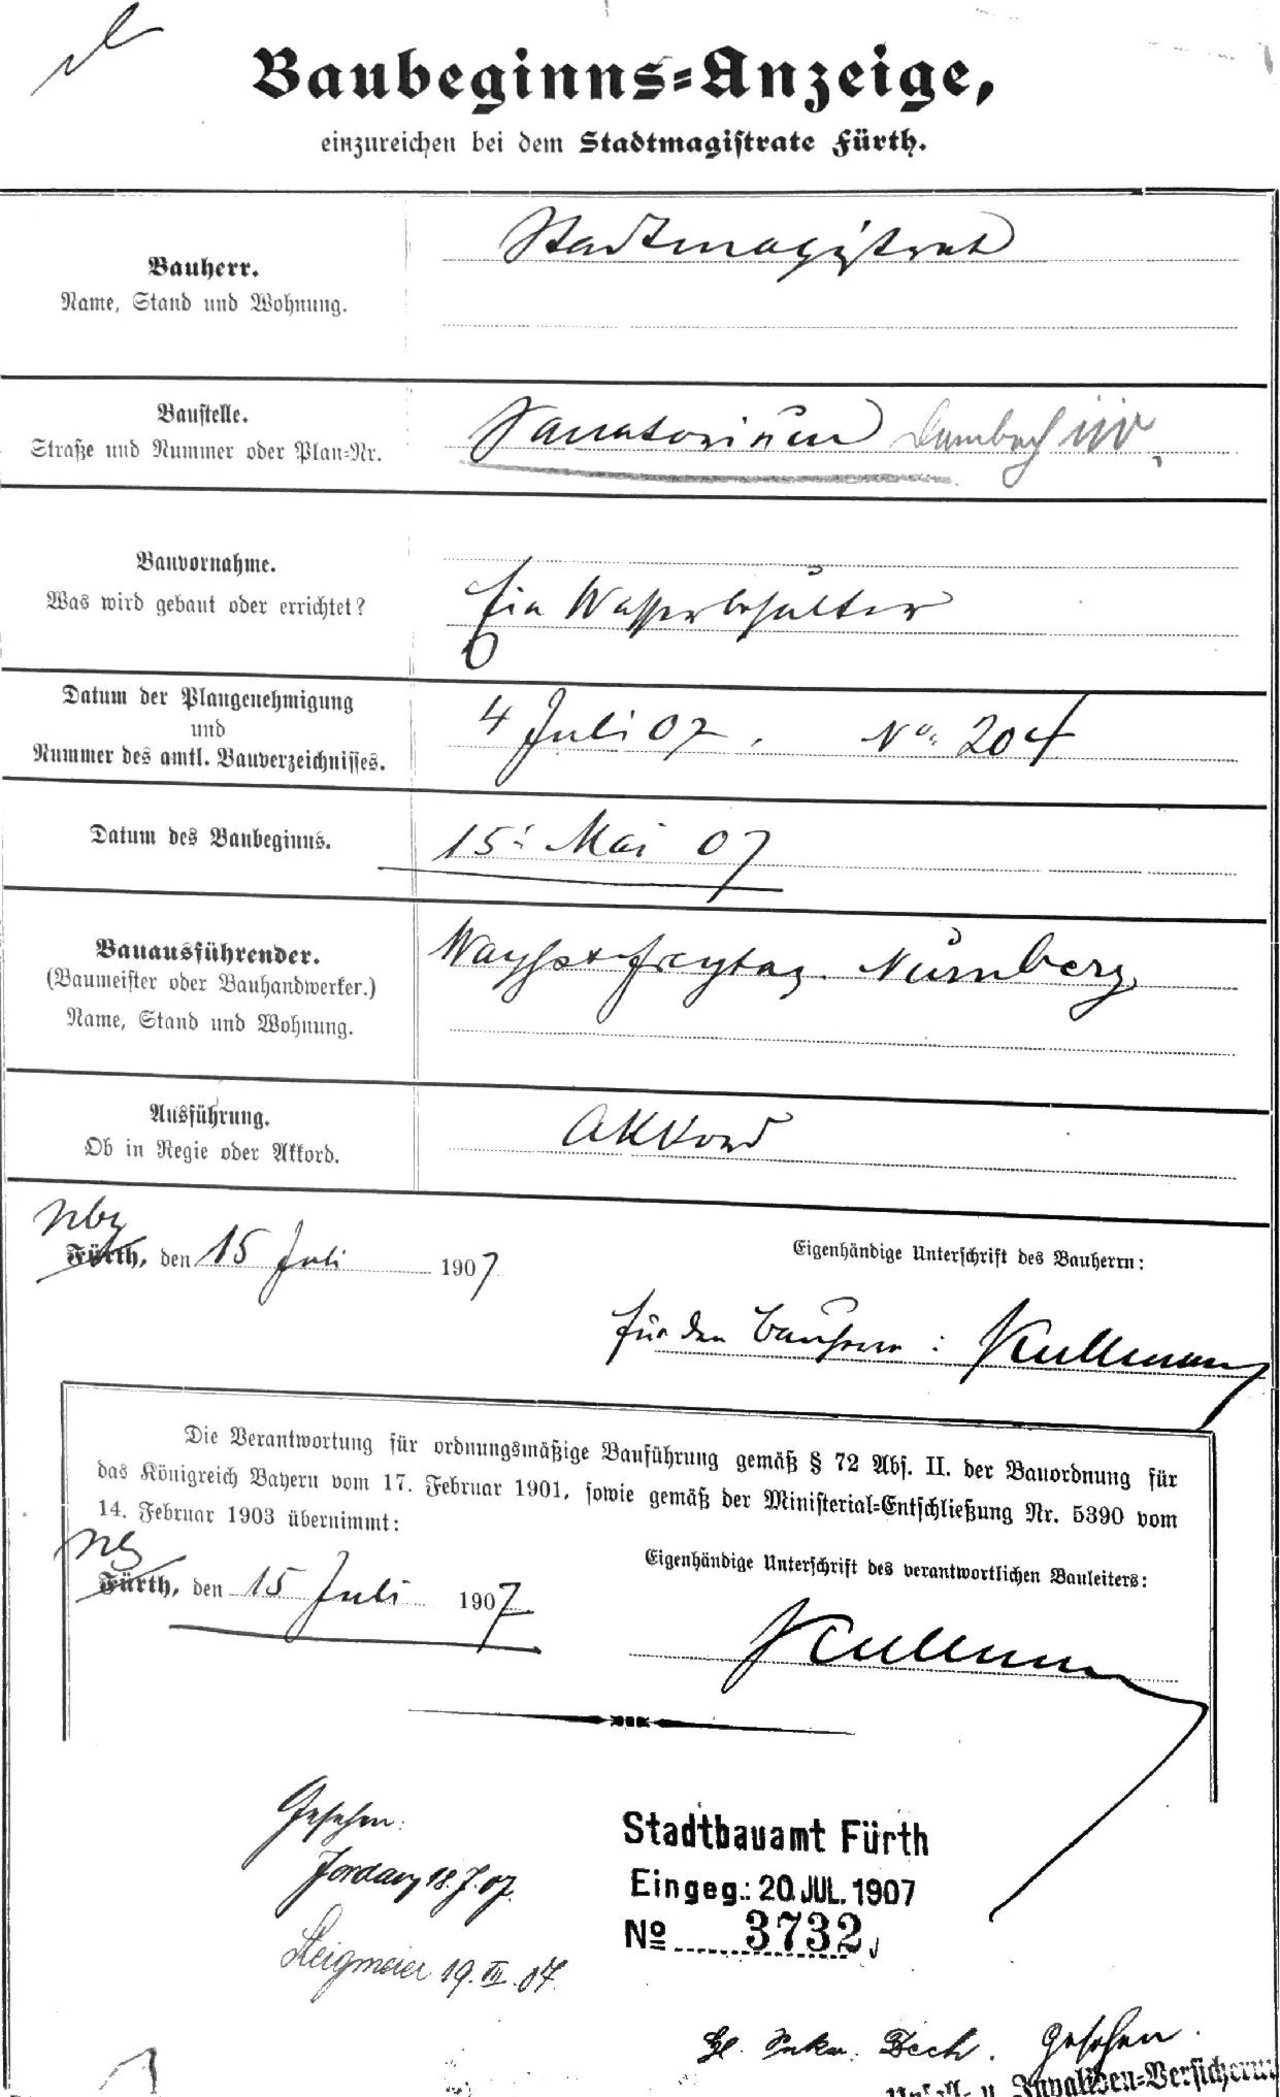 Baubeginns-Anzeige,
einzureichen bei dem Stadtmagistrate Fürth.
Bauherr.
Name, Stand und Wohnung.
Stadtmagistrat
Baustelle.
Straße und Nummer oder Plan-Nr.
Sanatorium
Bauvornahme.
Was wird gebaut oder errichtet?
Ein Wasserbehälter
Datum der Plangenehmigung
und
Nummer des amtl. Bauverzeichnisses.
4 Juli 07. No. 204
Datum des Baubeginns.
15. Mai 07
Bauausführender.
(Baumeister oder Bauhandwerker.)
Name, Stand und Wohnung.
Wayss + Freytag. Nürnberg
Ausführung.
Ob in Regie oder Akkord.
Akkord
Nbg
Fürth, den 15 Juli 1907
Eigenhändige Unterschrift des Bauherrn:
für den Bauherrn: Kullmann
Die Verantwortung für ordnungsmäßige Bauführung gemäß § 72 Abs. II. der Bauordnung für
das Königreich Bayern vom 17. Februar 1901, sowie gemäß der Ministerial-Entschließung Nr. 5390 vom
14. Februar 1903 übernimmt:
Nbg
Fürth, den 15 Juli 1907
Eigenhändige Unterschrift des verantwortlichen Bauleiters:
Kullmann
Gesehen:
Jordan 18.7.07.
Steigmeier 19. VII. 07.
Stadtbauamt Fürth
Eingeg.: 20. JUL. 1907
No 3732
Gesehen.
Unfall- u. Invaliden-Versicherung